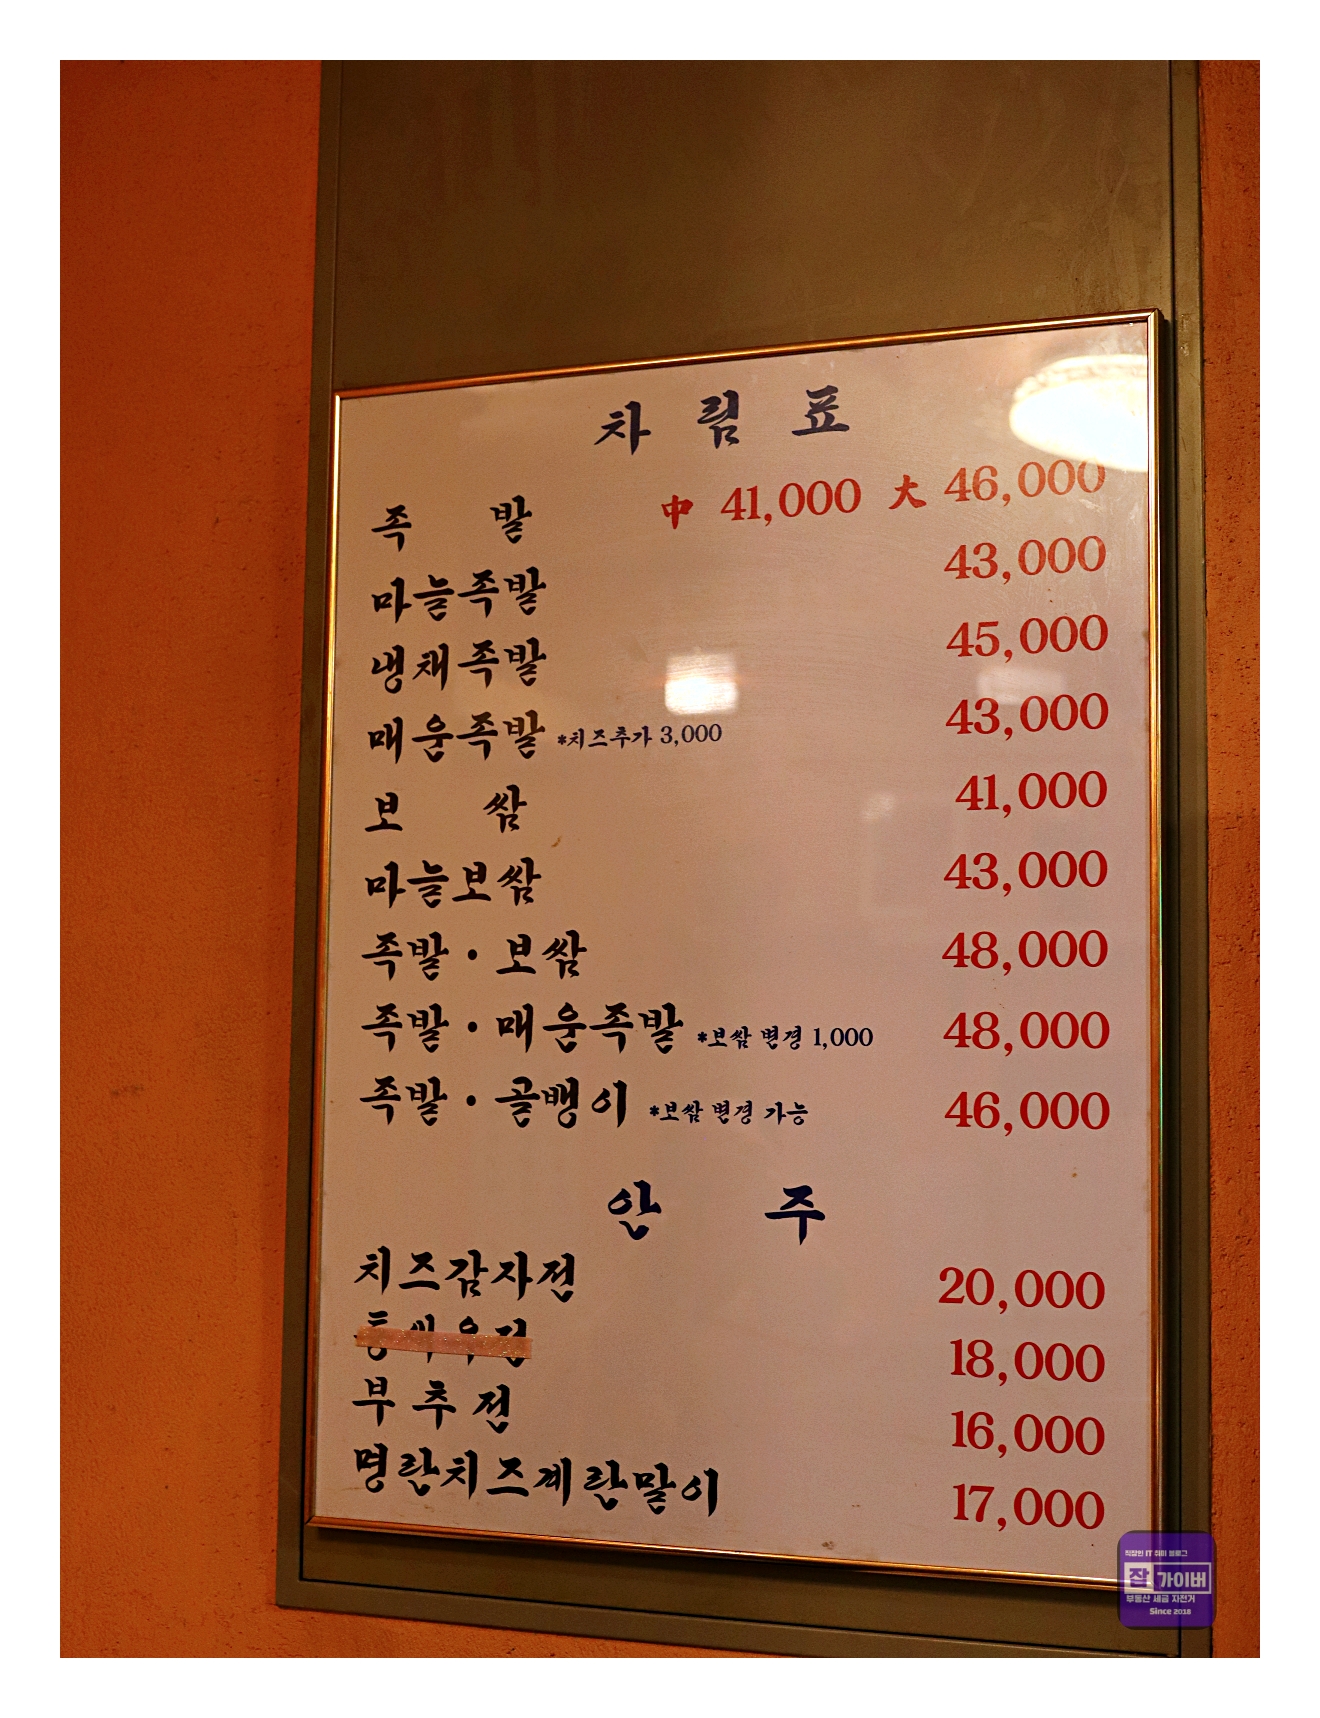 차 림 표
족 발 中 41,000 大 46,000
마늘족발 43,000
냉채족발 45,000
매운족발 *치즈추가 3,000 43,000
보 쌈 41,000
마늘보쌈 43,000
족발 · 보쌈 48,000
족발 · 매운족발 *보쌈 변경 1,000 48,000
족발 · 골뱅이 *보쌈 변경 가능 46,000
안 주
치즈감자전 20,000
18,000
부추전 16,000
명란치즈계란말이 17,000
직장인 IT 취미 블로그
잡가이버
부동산 세금 자전거
Since 2018